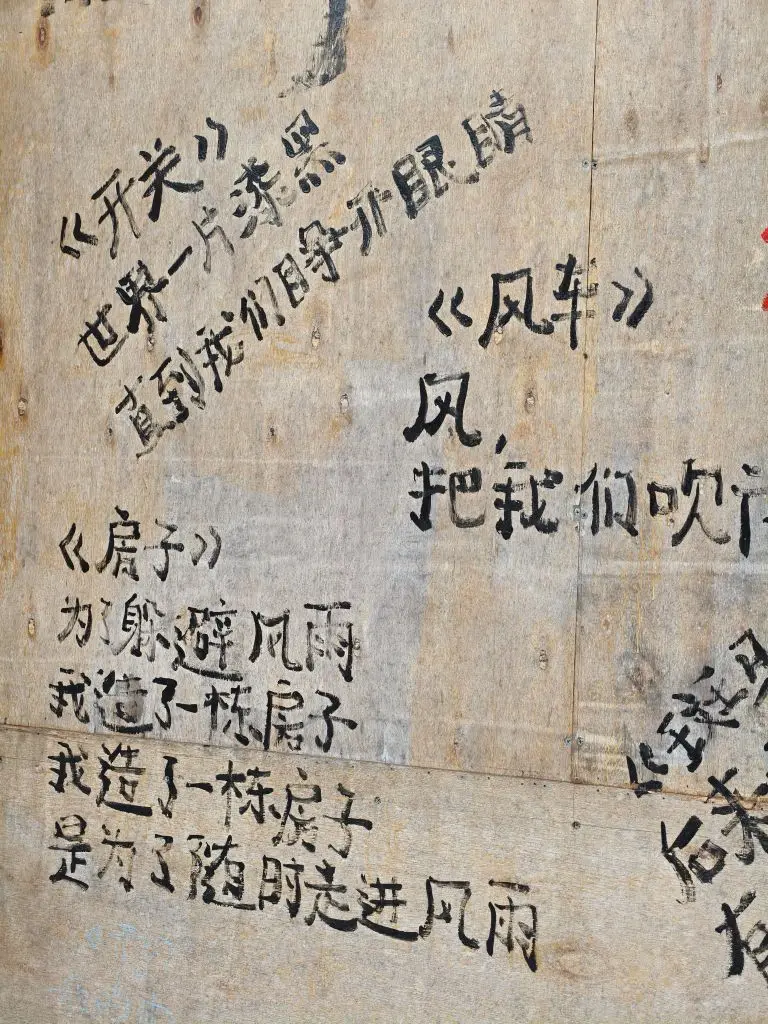 《开关》
世界一片漆黑
直到我们睁开眼睛
《风车》
风，
把我们吹
《房子》
为了躲避风雨
我造了一栋房子
我造了一栋房子
是为了随时走进风雨
后来